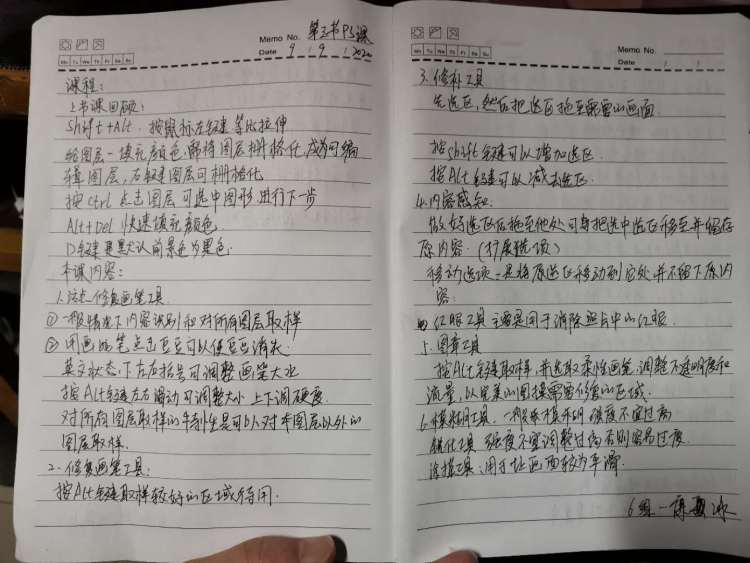 Memo No. 第三节PS课
Mo Tu We Th Fr Sa Su
Date 9 / 9 /
课程:
上节课回顾:
Shift+Alt 按鼠标左键 等比拉伸
给图层一填充颜色,需将图层栅格化,成为可编
辑图层,右键图层可栅格化
按ctrl点击图层可选中图形 进行下一步
Alt+Del 快速填充颜色
D键是默认前景色为黑色
本课内容:
1.污点修复画笔工具
① 一般情况下内容识别和对所有图层取样
② 用画的笔点击豆豆可以使豆豆消失
英文状态下左右括号可调整画笔大小
按Alt键左右滑动可调整大小 上下调硬度
对所有图层取样的特性是可以对本图层以外的
图层取样
2.修复画笔工具:
按Alt键取样较好的区域待用
Memo No.
Mo Tu We Th Fr Sa Su
Date / /
3.修补工具
先选区,然后把选区拖至需要的画面
按shift键可以增加选区
按Alt键可以减去选区
4.内容感知:
做好选区后拖至他处可将把选中选区移至并留存
原内容.(扩展选项)
移动选项一是将原选区移动到它处,并不留下原内
容:
红眼工具 主要是用于消除照片中的红眼
5.图章工具
按Alt键取样,并选取柔性画笔,调整不透明度和
流量,以完美的图摸需要修复的区域
6.模糊工具,一般 强度不宜过高
锐化工具 强度不宜调整过高否则容易过度
涂抹工具:用于让画面较为平滑
6组一